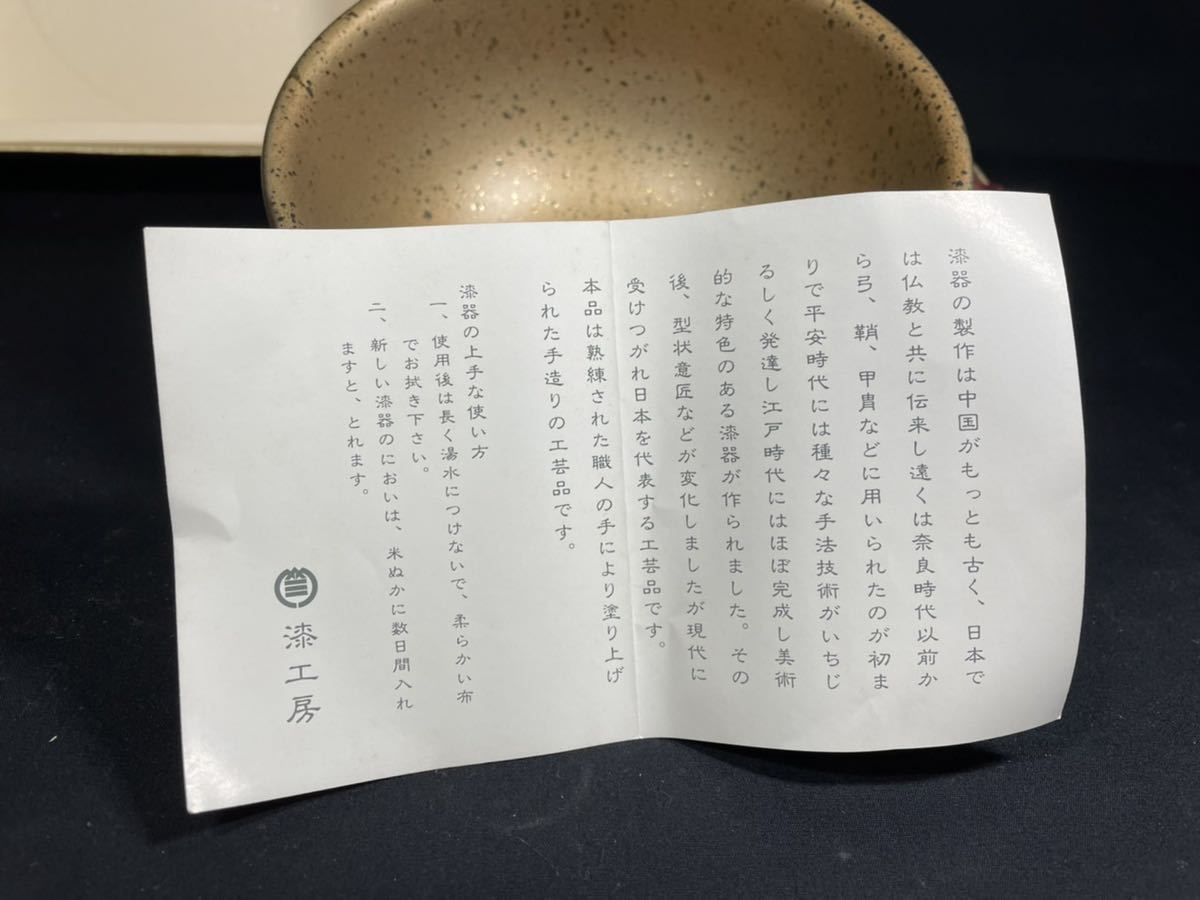 漆器の製作は中国がもっとも古く、日本で
は仏教と共に伝来し遠くは奈良時代以前か
ら弓、鞘、甲冑などに用いられたのが初ま
りで平安時代には種々な手法技術がいちじ
るしく発達し江戸時代にはほぼ完成し美術
的な特色のある漆器が作られました。その
後、型状意匠などが変化しましたが現代に
受けつがれ日本を代表する工芸品です。
本品は熟練された職人の手により塗り上げ
られた手造りの工芸品です。
漆器の上手な使い方
一、使用後は長く湯水につけないで、柔らかい布
でお拭き下さい。
二、新しい漆器のにおいは、米ぬかに数日間入れ
ますと、とれます。
漆工房